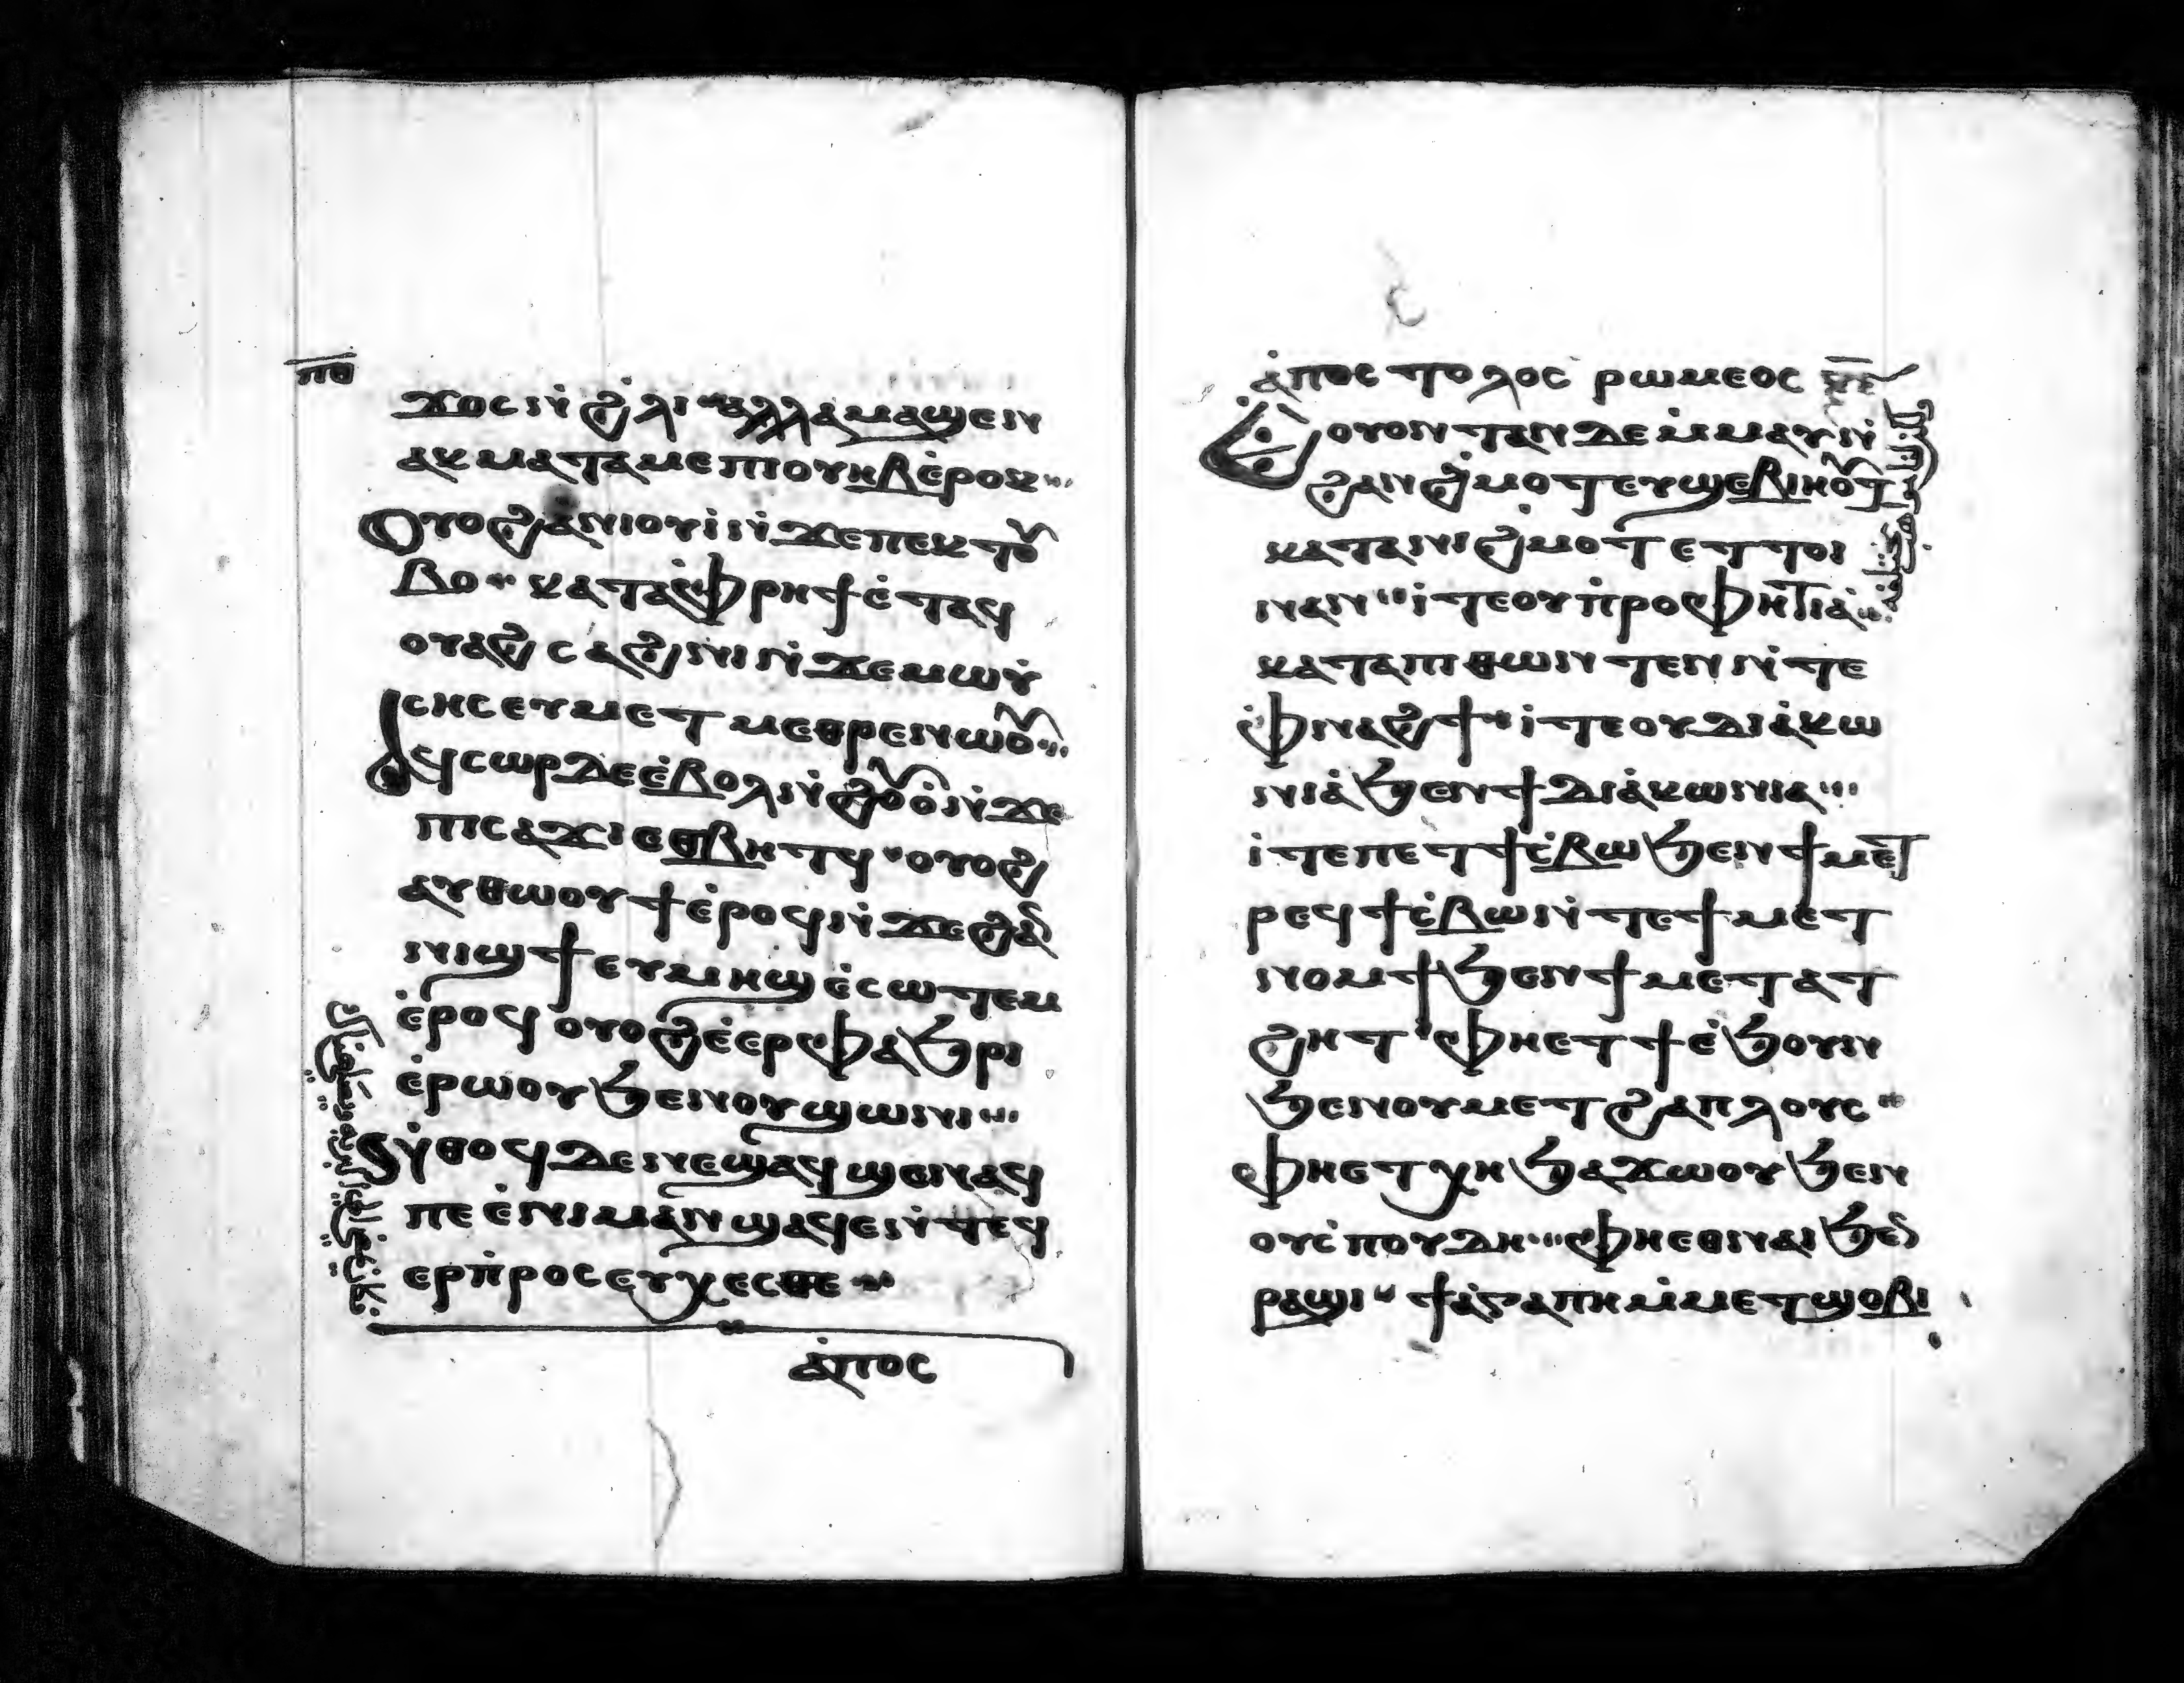 ⲡⲑ
ϫⲟⲥ ⲛ̇ϩ̇ⲗⲓ ⲁⲗⲗⲁ ⲙⲁϣⲉⲛ
ⲁⲕ ⲙⲁⲧⲁⲙⲉ ⲡⲓⲟⲩⲏⲃ ⲉ̇ⲣⲟⲕ
ⲟⲩⲟϩ ⲁ̇ⲛⲓⲟⲩⲓ̇ ⲛ̇ϫⲉ ⲡⲉⲕⲧⲟⲩ
ⲃⲟ ⲕⲁⲧⲁ ⲫ̇ⲣⲏϯ ⲉ̇ⲧⲁϥ
ⲟⲩⲁϩ ⲥⲁϩⲛⲓ ⲛ̇ϫⲉ ⲙⲱⲩ̇
ⲥⲏⲥ ⲉⲩⲙⲉⲧⲙⲉⲑⲣⲉ ⲛⲱⲟⲩ
ⲁϥⲥⲱⲣ ⲇⲉ ⲉ̇ⲃⲟⲗ ⲛ̇ϩⲟⲩⲟ̇ ⲛ̇ϫⲉ
ⲡⲓⲥⲁϫⲓ ⲉⲑⲃⲏⲧϥ ⲟⲩⲟϩ
ⲁⲩⲑⲱⲟⲩϯ ⲉ̇ⲣⲟϥ ⲛ̇ϫⲉ ϩⲁⲛ
ⲛⲓϣϯ ⲉⲩⲙⲏϣ ⲉ̇ⲥⲱⲧⲉⲙ
ⲉ̇ⲣⲟϥ ⲟⲩⲟϩ ⲉ̇ⲉⲣⲫⲁϧⲣⲓ
ⲉ̇ⲣⲱⲟⲩ ϧⲉⲛⲟⲩϣⲱⲛⲓ
ⲛ̇ⲑⲟϥ ⲇⲉ ⲛⲉϣⲁϥϣⲉⲛⲁϥ
ⲡⲉ ⲉ̇ⲛⲓⲙⲁⲛϣⲁϥⲉ ⲛ̇ⲧⲉϥ
ⲉⲣⲡ̇ⲣⲟⲥⲉⲩⲭⲉⲥⲑⲉ
ⲁ̇ⲡⲟⲥ
ⲁ̇ⲡⲟⲥⲧⲟⲗⲟⲥ ⲣⲱⲙⲉⲟⲥ
ⲉⲟⲩⲟⲛⲧⲁⲛ ⲇⲉ ⲙ̇ⲙⲁⲩ ⲛ̇
ϩⲁⲛϩ̇ⲙⲟⲧ ⲉⲩϣⲉⲃⲓⲏⲟⲩⲧ
ⲕⲁⲧⲁ ⲡⲓϩ̇ⲙⲟⲧ ⲉⲧⲧⲟⲓ
ⲛⲁⲛ ⲓ̇ⲧⲉ ⲟⲩⲡ̇ⲣⲟⲫⲏⲧⲓⲁ̇
ⲕⲁⲧⲁ ⲡⲓⲑⲱⲛⲧⲉⲛ ⲛ̇ⲧⲉ
ⲫ̇ⲛⲁϩϯ ⲓ̇ⲧⲉ ⲟⲩⲇⲓⲁ̇ⲕⲱ
ⲛⲓⲁ̇ ϧⲉⲛϯⲇⲓⲁ̇ⲕⲱⲛⲓⲁ
ⲓ̇ⲧⲉ ⲡⲉⲧϯⲥ̇ⲃⲱ ϧⲉⲛϯⲙⲉⲧ
ⲣⲉϥϯⲥ̇ⲃⲱ ⲛ̇ⲧⲉϯⲙⲉⲧ
ⲛⲟⲙϯ ϧⲉⲛϯⲙⲉⲧⲁⲧ
ϩⲏⲧ ⲫⲏⲉⲧϯ ⲉ̇ϧⲟⲩⲛ
ϧⲉⲛⲟⲩⲙⲉⲧϩⲁⲡⲗⲟⲩⲥ
ⲫⲏⲉⲧⲭⲏ ϧⲁϫⲱⲟⲩ ϧⲉⲛ
ⲟⲩⲥ̇ⲡⲟⲩⲇⲏ ⲫⲏⲉⲑⲛⲁⲓ ϧⲉⲛ
ⲣⲁϣⲓ ϯⲁ̇ⲅⲁⲡⲏ ⲙ̇ⲙⲉⲧϣⲟⲃⲓ